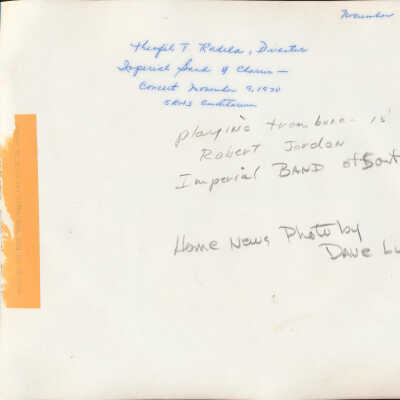 November
T. Radela, Director
Imperial Band & Chorus -
Concert November 9, 1970
SRHS Auditorium
playing trombone - is
Robert Jordan
Imperial BAND of Sout
Home News Photo by
Dave Lu